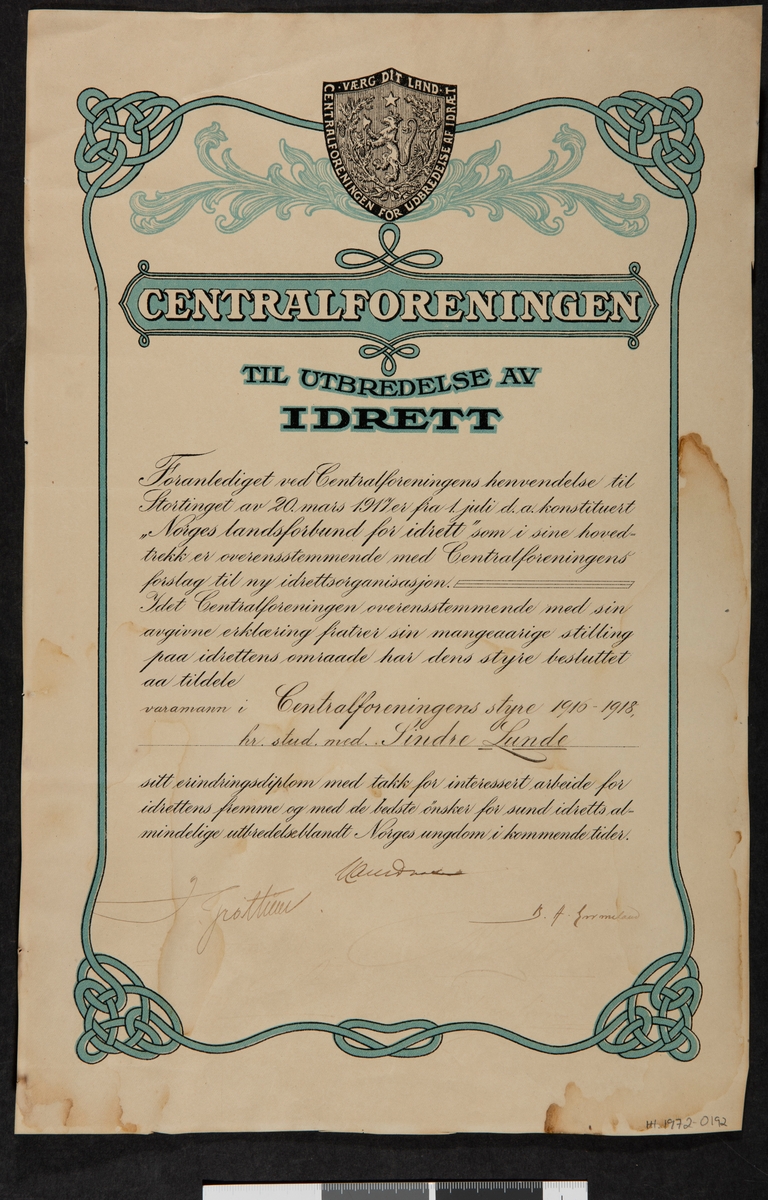 · VÆRG DIT LAND ·
CENTRALFORENINGEN FOR UDBREDELSE AF IDRÆT
CENTRALFORENINGEN
TIL UTBREDELSE AV
IDRETT
Foranlediget ved Centralforeningens henvendelse til
Stortinget av 20. mars 1917 er fra 1. juli d. a. konstituert
„Norges landsforbund for idrett" som i sine hoved-
trekk er overensstemmende med Centralforeningens
forslag til ny idrettsorganisasjon.
Idet Centralforeningen overensstemmende med sin
avgivne erklæring fratrer sin mangeaarige stilling
paa idrettens omraade har dens styre besluttet
aa tildele
varamann i Centralforeningens styre 1916-1918,
hr. stud. med. Sindre Lunde
sitt erindringsdiplom med takk for interessert arbeide for
idrettens fremme og med de bedste önsker for sund idretts al-
mindelige utbredelse blandt Norges ungdom i kommende tider.
HI-1972-0192